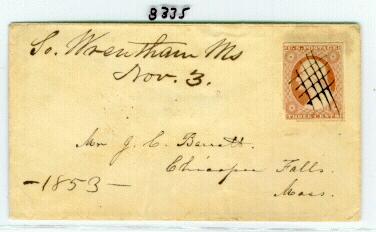 8335
So. Wrentham Ms
Nov. 3.
U.S. POSTAGE
THREE CENTS
Mr J. C. Barrett
Chicopee Falls.
Mass.
-1853-